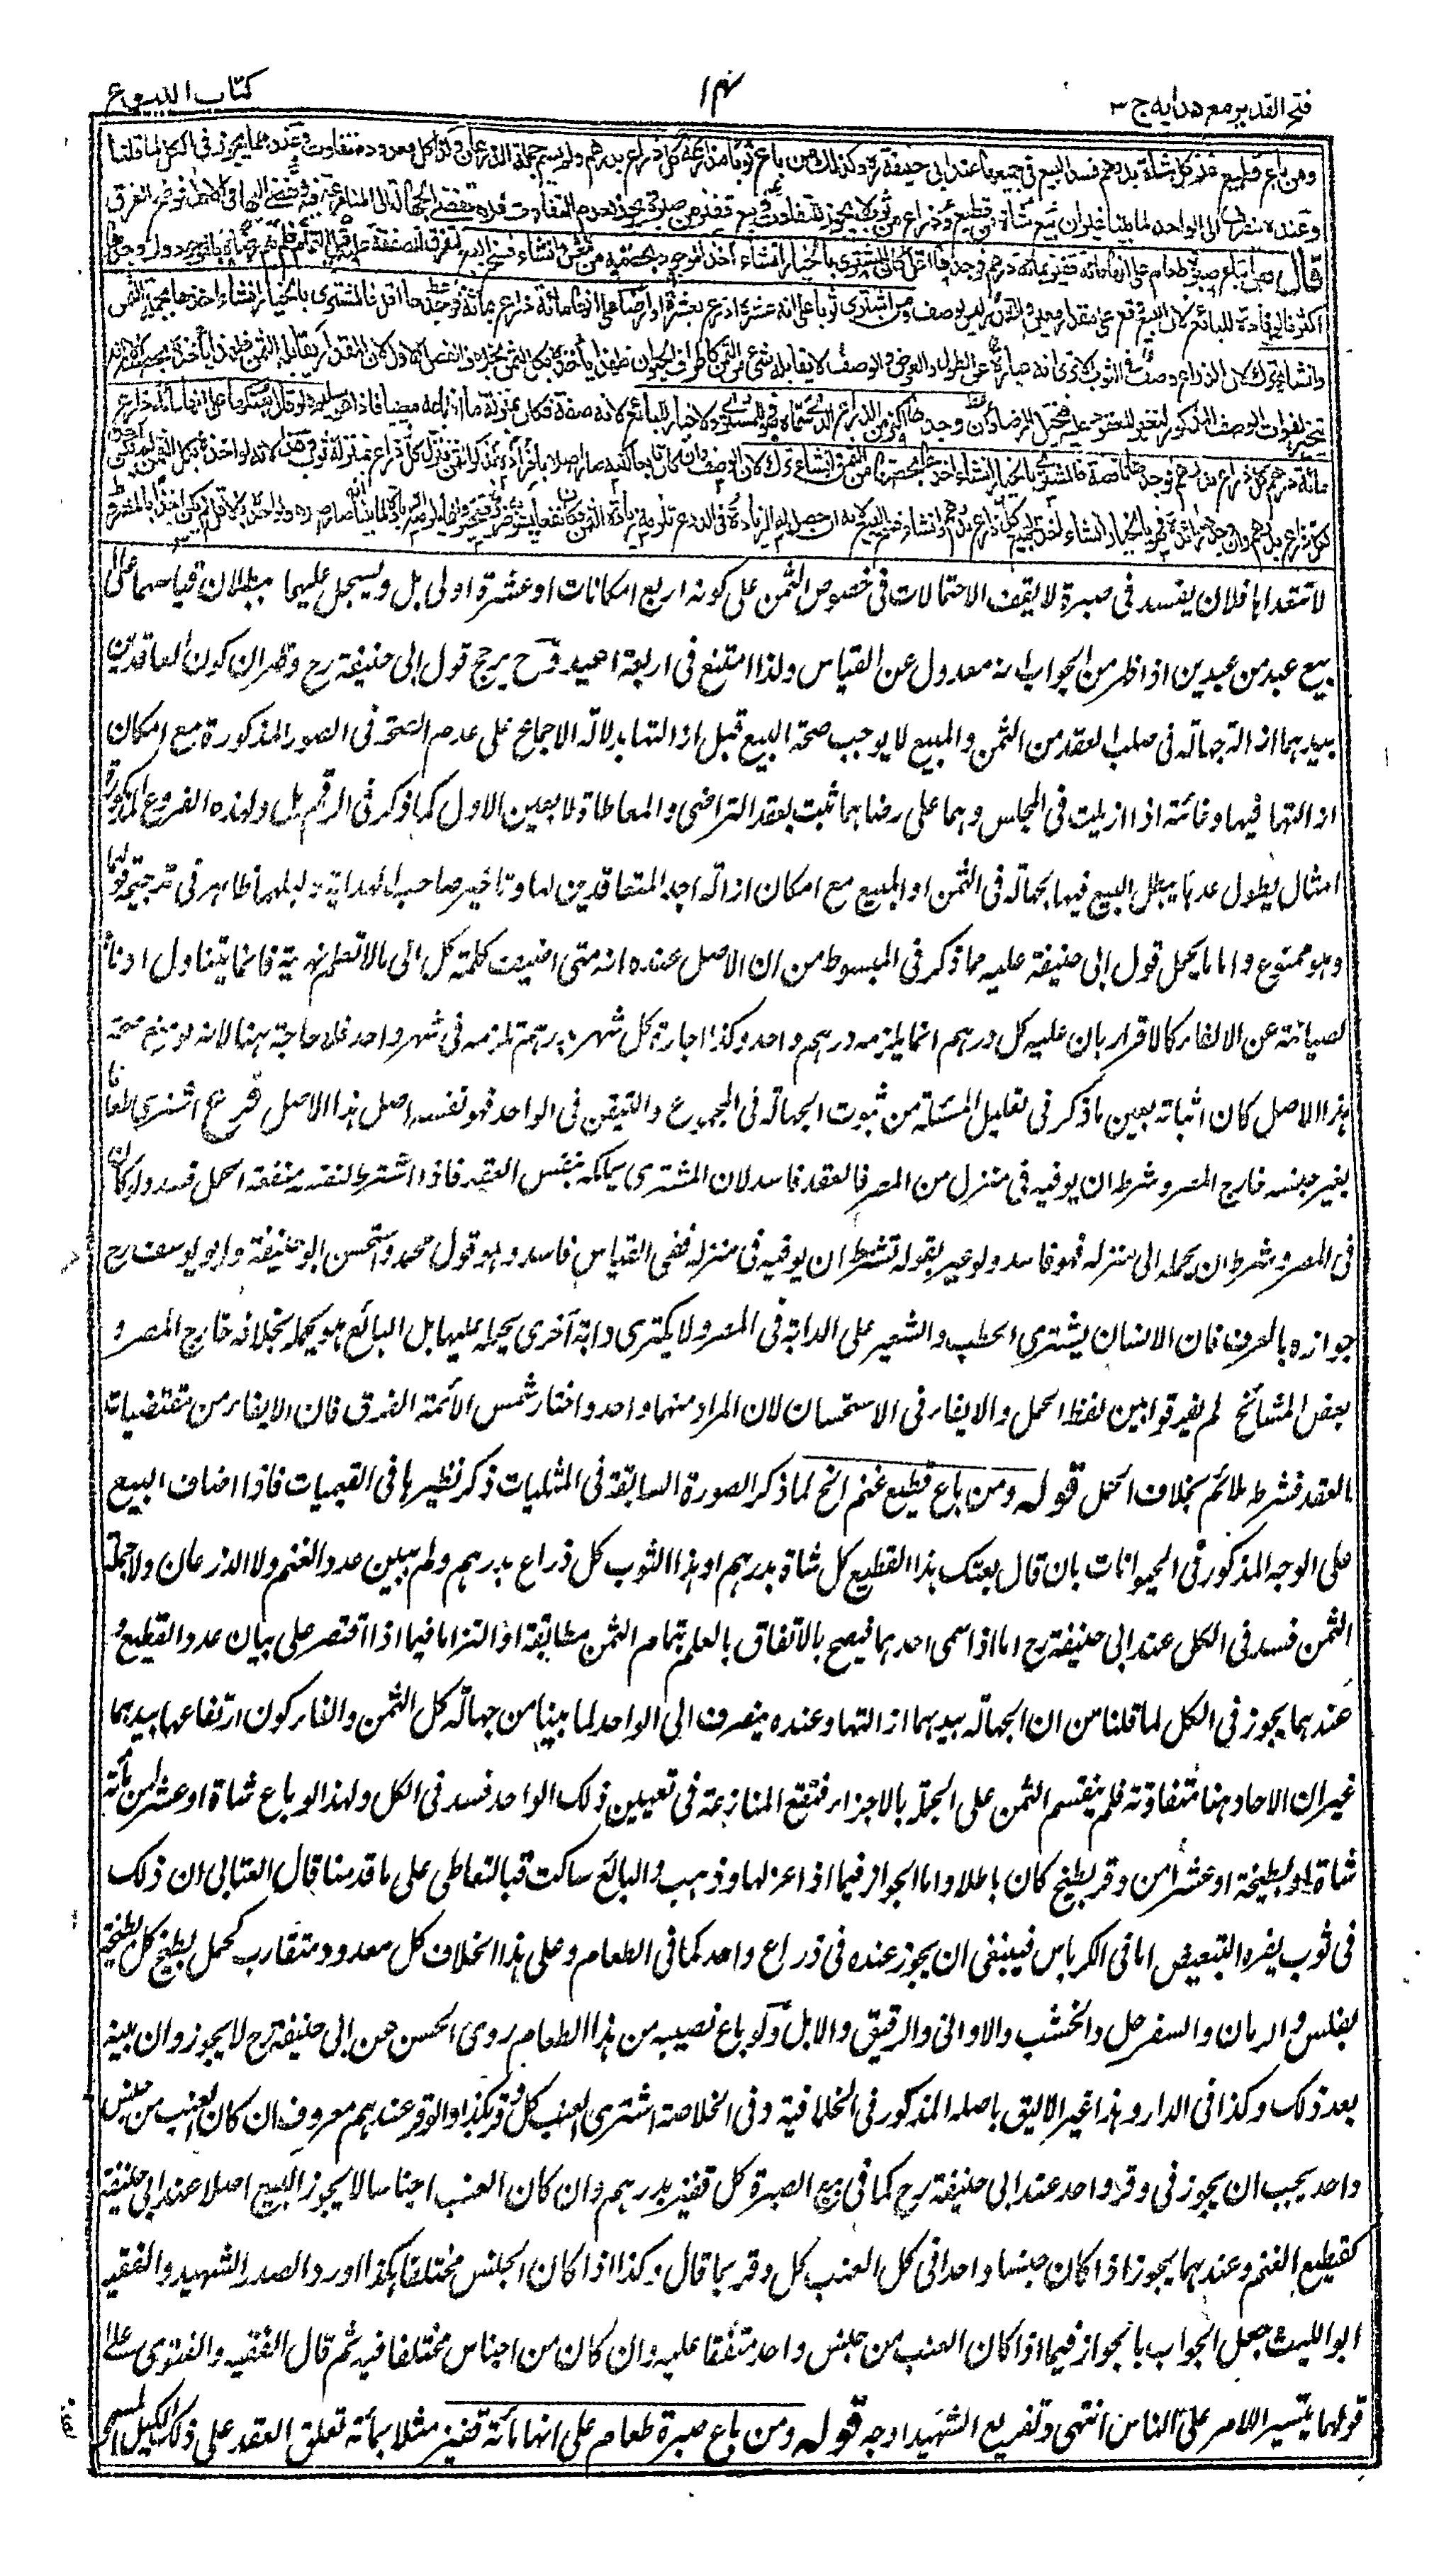 فتح القدير مع هدايه ج ٣
كتاب البيوع
ومن باع قطيع غنم كل شاة بدرهم فسد البيع في جميعها عند ابي حنيفة رح وكذلك من باع ثوبا مذارعة كل ذراع بدرهم ولم يسم جملة الذرعان وكذا كل معدود متفاوت وعندهما يجوز في الكل لما قلنا
وعنده ينصرف الى الواحد لما بينا غير ان بيع شاة من قطيع وذراع من ثوب لا يجوز للتفاوت وبيع قفيز من صبرة يجوز لعدم التفاوت فلا تفضي الجهالة الى المنازعة فيه وتفضي اليها في الاول فوضح الفرق
قال ومن ابتاع صبرة طعام على انها مائة قفيز بمائة درهم فوجدها اقل كان المشتري بالخيار ان شاء اخذ الموجود بحصته من الثمن وان شاء فسخ البيع لتفرق الصفقة عليه قبل التمام فلم يتم رضاه بالموجود وان وجدها
اكثر فالزيادة للبائع لان البيع وقع على مقدار معين والقدر ليس بوصف ومن اشترى ثوبا على انه عشرة اذرع بعشرة او ارضا على انها مائة ذراع بمائة فوجدها اقل فالمشتري بالخيار ان شاء اخذها بجملة الثمن
وان شاء ترك لان الذراع وصف في الثوب الا ترى انه عبارة عن الطول والعرض والوصف لا يقابله شئ من الثمن كاطراف الحيوان فلهذا يأخذه بكل الثمن بخلاف الفصل الاول لان المقدار يقابله الثمن فلهذا يأخذه بحصته الا انه
يتخير لفوات الوصف المذكور لتغير المعقود عليه فيختل الرضا وان وجدها اكثر من الذراع الذي سماه فهو للمشتري ولا خيار للبائع لانه صفة فكان بمنزلة ما اذا باعه معيبا فاذا هو سليم ولو قال بعتكها على انها مائة ذراع
بمائة درهم كل ذراع بدرهم فوجدها ناقصة فالمشتري بالخيار ان شاء اخذها بحصتها من الثمن وان شاء ترك لان الوصف وان كان تابعا لكنه صار اصلا بافراده بذكر الثمن فينزل كل ذراع منزلة ثوب وهذا لانه لو اخذه بكل الثمن لم يكن آخذا
كل ذراع بدرهم وان وجدها زائدة فهو بالخيار ان شاء اخذ الجميع كل ذراع بدرهم وان شاء فسخ البيع لانه ان حصل له الزيادة في الذرع تلزمه زيادة الثمن فكان نفعا يشوبه ضرر فيتخير وانما يلزمه الزيادة لما بينا انه صار اصلا ولو اخذه بالاقل لم يكن آخذا بالمشروط
لا تنقد اها فلان يفسد في صبرة لا يقف الاحتمالات في خصوص الثمن على كونه اربع امكانات او عشرة اولى بل ويسجل عليهما ببطلان قياسهما على
بيع عبد من عبدين اذ اظهر من الجواب انه معدول عن القياس ولذا امتنع في اربعة اعبد وح يرجح قول ابي حنيفة رح وظهر ان كون العاقدين
بيدهما ازالة جهالة في صلب العقد من الثمن والمبيع لا يوجب صحة البيع قبل ازالتها بدلالة الاجماع على عدم الصحة في الصور المذكورة مع امكان
ازالتها فيها وغائته اذا ازيلت في المجلس وهما على رضاهما ثبت بعقد التراضي والمعاطاة لا بعين الاول كما ذكر في الرقم بل ولهذه الفروع المذكورة
امثال يطول عدها يبطل البيع فيها بجهالة في الثمن او المبيع مع امكان ازالة احد المتعاقدين لها وتاخير صاحب الهداية دليلهما ظاهر في ترجيحه قولهما
وهو ممنوع واما ما يحمل قول ابي حنيفة عليه مما ذكر في المبسوط من ان الاصل عنده انه متى اضيفت كلمة كل الى ما لا تعلم نهايته فانما يتناول ادناه
لصيانته عن الالغاء كالاقرار بان عليه كل درهم انما يلزمه درهم واحد وكذا اجارة كل شهر بدرهم تلزمه في شهر واحد فلا حاجة هنا لانه لو تم صحة
هذا الاصل كان اثباته بعين ما ذكر في تعليل المسئلة من ثبوت الجهالة في المجموع والتيقن في الواحد فهو نفسه اصل هذا الاصل فرع اشترى طعاما
بغير جنسه خارج المصر وشرط ان يوفيه في منزل من المصر فالعقد فاسد لان المشتري يملكه بنفس العقد فاذا اشترط لنفسه منفعة الحمل فسد ولو كان
في المصر وشرط ان يحمله الى منزله فهو فاسد ولو عبر بقوله تشترط ان يوفيه في منزله ففي القياس فاسد وهو قول محمد واستحسن ابو حنيفة وابو يوسف رح
جوازه بالعرف فان الانسان يشتري الحطب والشعير على الدابة في المصر ولا يكتري دابة اخرى يحمل عليها بل البائع هو يحمله بخلافه خارج المصر و
بعض المشائخ لم يفرقوا بين لفظ الحمل والايفاء في الاستحسان لان المراد منهما واحد واختار شمس الائمة الفرق فان الايفاء من مقتضيات
العقد فشرطه ملائم بخلاف الحمل قوله ومن باع قطيع غنم الخ لما ذكر الصورة السابقة في المثليات ذكر نظيرها في القيميات فاذا اضاف البيع
على الوجه المذكور في الحيوانات بان قال بعتك هذا القطيع كل شاة بدرهم او هذا الثوب كل ذراع بدرهم ولم يبين عدد الغنم ولا الذرعان ولا جملة
الثمن فسد في الكل عند ابي حنيفة رح اما اذا سمى احدهما فيصح بالاتفاق بالعلم بتمام الثمن مطابقة او التزاما فيما اذا اقتصر على بيان عدد القطيع و
عندهما يجوز في الكل لما قلنا من ان الجهالة بيدهما ازالتها وعنده ينصرف الى الواحد لما بينا من جهالة كل الثمن والغاء كون ارتفاعها بيدهما
غير ان الاحاد هنا متفاوتة فلم ينقسم الثمن على الجملة بالاجزاء فتقع المنازعة في تعيين ذلك الواحد ففسد في الكل ولهذا لو باع شاة او عشرا من مائة
شاة او بطيخة او عشرا من وقر بطيخ كان باطلا واما الجواز فيما اذا عزلها وذهب والبائع ساكت فبالتعاطي على ما قدمنا قال العتابي ان ذلك
في ثوب يضره التبعيض اما في الكرباس فينبغي ان يجوز عنده في ذراع واحد كما في الطعام وعلى هذا الخلاف كل معدود متقارب كحمل بطيخ كل بطيخة
بفلس والرمان والسفرجل والخشب والاواني والرقيق والابل ولو باع نصيبه من هذا الطعام روى الحسن عن ابي حنيفة رح لا يجوز وان بينه
بعد ذلك وكذا في الدار وهذا غير لائق باصله المذكور في الخلافية وفي الخلاصة اشترى العنب كل وقر بكذا والوقر عندهم معروف ان كان العنب من جنس
واحد يجب ان يجوز في وقر واحد عند ابي حنيفة رح كما في بيع الصبرة كل قفيز بدرهم وان كان العنب اجناسا لا يجوز البيع اصلا عند ابي حنيفة
كقطيع الغنم وعندهما يجوز اذا كان جنسا واحدا في كل العنب كل وقر بما قال وكذا اذا كان الجنس مختلفا هكذا اورد الصدر الشهيد والفقيه
ابو الليث جعل الجواب بالجواز فيما اذا كان العنب من جنس واحد متفقا عليه وان كان من اجناس مختلفا فيه ثم قال الفقيه والفتوى على
قولهما تيسيرا للامر على الناس انتهى وتفريع الشهيد اوجه قوله ومن باع صبرة طعام على انها مائة قفيز مثلا بمائة تعلق العقد على ذلك الكيل المسمى